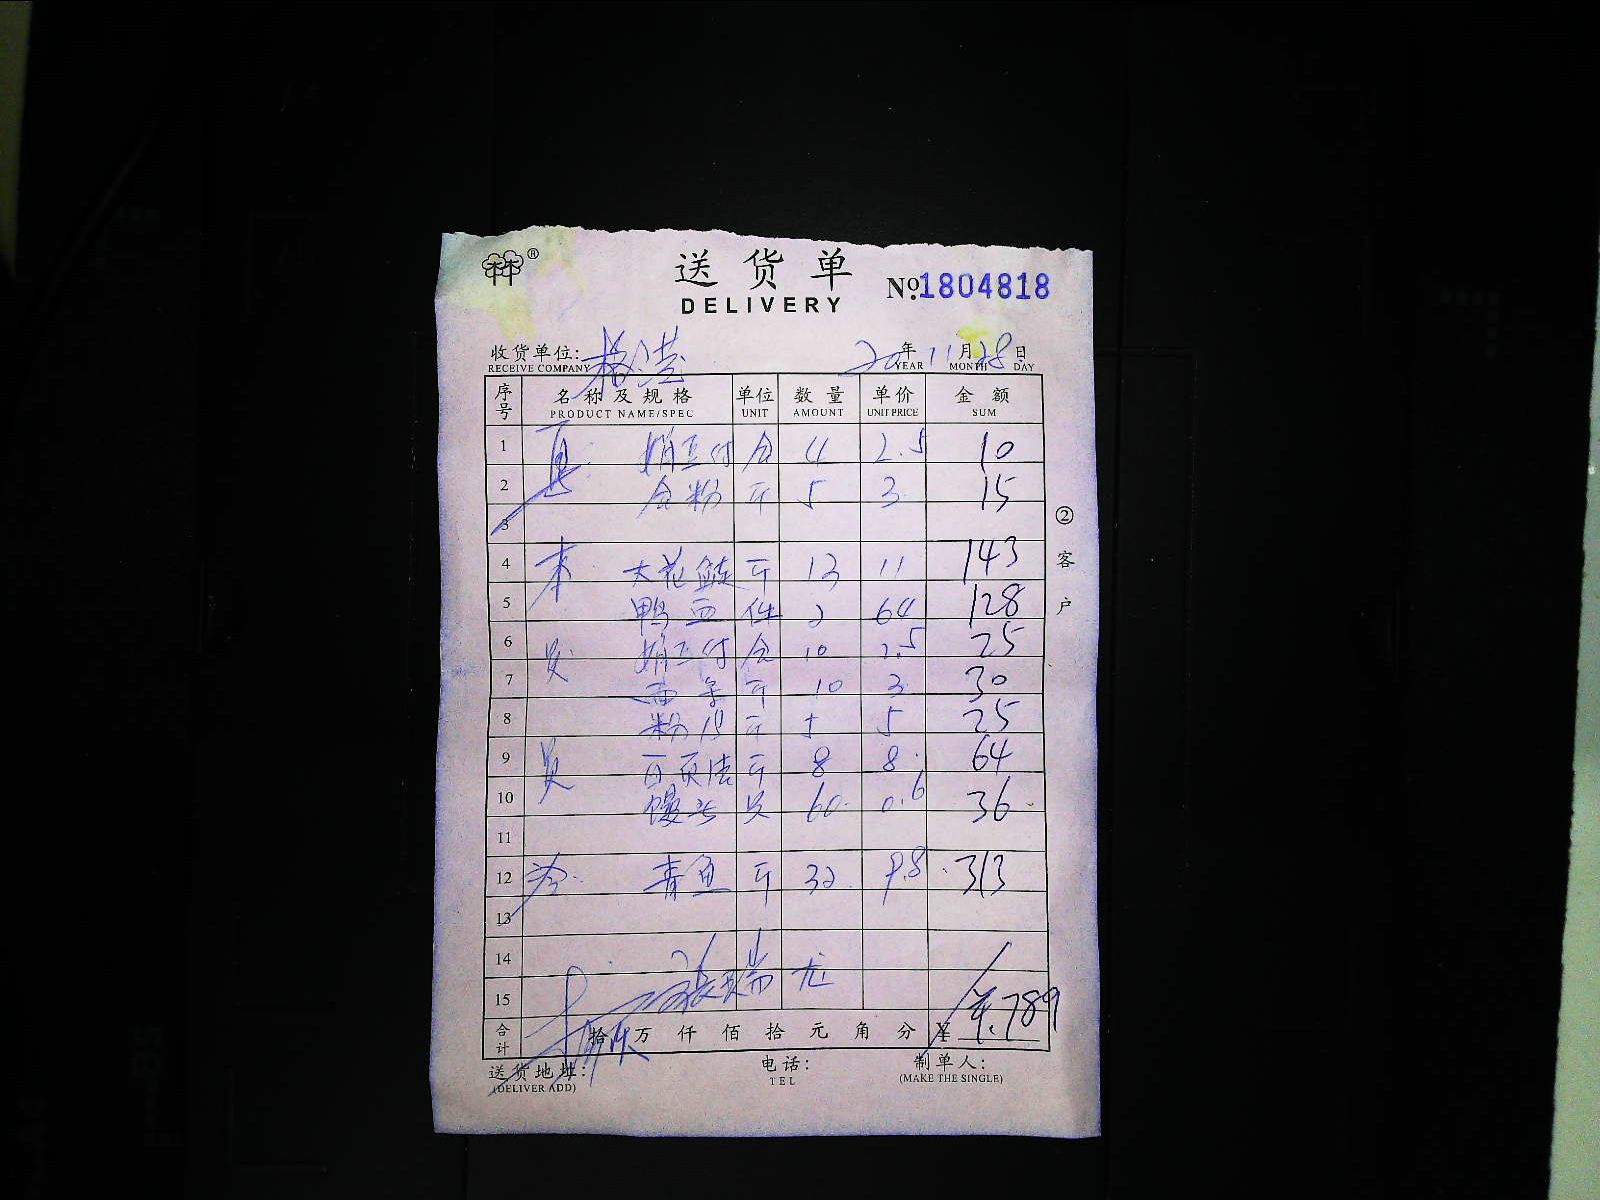 林林®
送货单
DELIVERY
No.1804818
收货单位:
RECEIVE COMPANY
20 年 11 月 28 日
YEAR MONTH DAY
序号 名称及规格 单位 数量 单价 金额
PRODUCT NAME/SPEC UNIT AMOUNT UNIT PRICE SUM
1 合 4 2.5 10
2 合粉 斤 5 3 15
3
4 大花鲢 斤 13 11 143
5 鸭血 件 2 64 128
6 合 10 2.5 25
7 面条 斤 10 3 30
8 粉 斤 5 5 25
9 百页结 斤 8 8 64
10 馒头 只 60 0.6 36
11
12 青鱼 斤 32 9.8 313
13
14
15 张瑞龙
合计 拾万仟佰拾元角分 ¥ 789
送货地址: 电话: 制单人:
(DELIVER ADD) TEL (MAKE THE SINGLE)
②客户